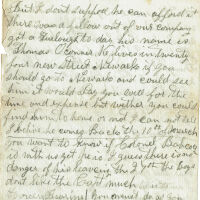 But I dont suppose he can afford it
There was a fellow out of our company
got a Furlough to day his name is
Thomas Conner. He lives in twenty
four new street Newark if you
should go to Newark and could see
him it would Pay you well for the
time and expense but wether you could
find him to home or not I can not tell
I believe he comes Back the 10th of March
You want to know if Colonel
is with us yet he is I guess there is no
danger of his leaving the 27th the Boys
dont like the Capt much
you must do as you